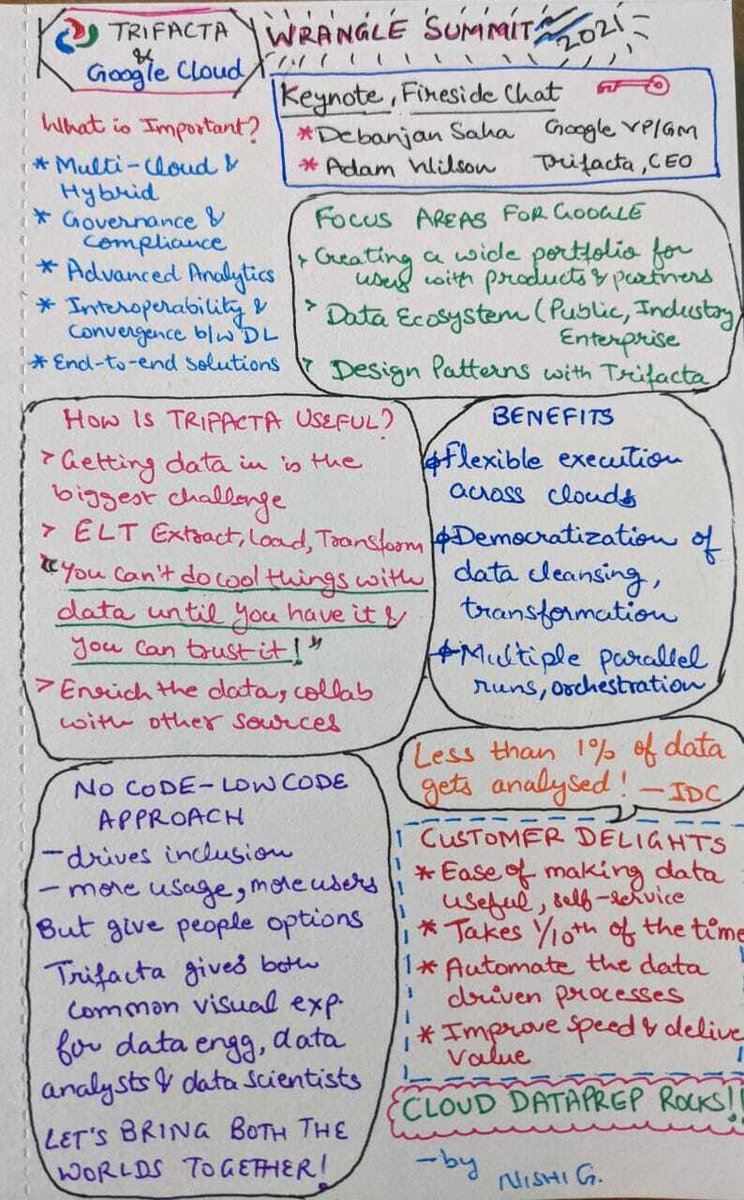 TRIFACTA
&
Google Cloud
WRANGLE SUMMIT 2021
Keynote, Fireside Chat
* Debanjan Saha Google VP/GM
* Adam Wilson Trifacta, CEO
What is Important?
* Multi-Cloud &
Hybrid
* Governance &
Compliance
* Advanced Analytics
* Interoperability &
Convergence b/w DL
* End-to-end solutions
FOCUS AREAS FOR GOOGLE
> Creating a wide portfolio for
users with products & partners
> Data Ecosystem (Public, Industry
Enterprise
> Design Patterns with Trifacta
HOW IS TRIFACTA USEFUL?
> Getting data in is the
biggest challenge
> ELT Extract, Load, Transform
"You can't do cool things with
data until you have it &
you can trust it!"
> Enrich the data, collab
with other sources
BENEFITS
Flexible execution
across clouds
Democratization of
data cleansing,
transformation
Multiple parallel
runs, orchestration
Less than 1% of data
gets analysed! - IDC
NO CODE-LOW CODE
APPROACH
- drives inclusion
- more usage, more users
But give people options
Trifacta gives both
common visual exp.
for data engg, data
analysts & data scientists
LET'S BRING BOTH THE
WORLDS TOGETHER!
CUSTOMER DELIGHTS
* Ease of making data
useful, self-service
* Takes 1/10th of the time
* Automate the data
driven processes
* Improve speed & delive
value
CLOUD DATAPREP ROCKS!!
- by
NISHI G.